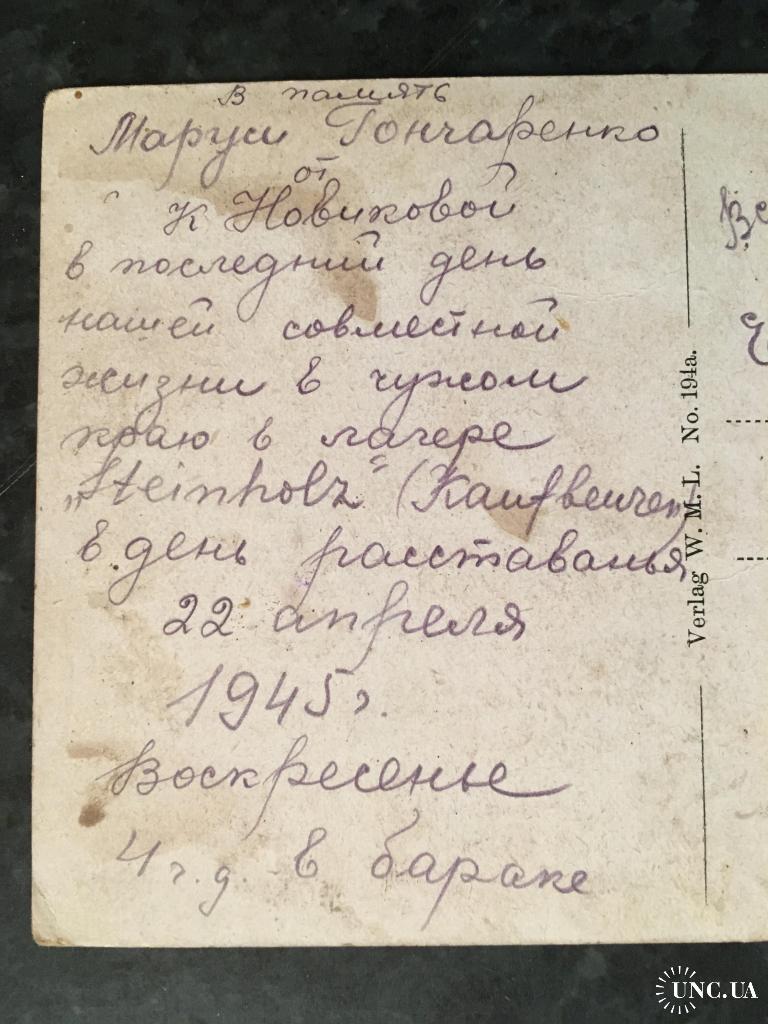 В память
Маруси Гончаренко
от
К Новиковой
в последний день
нашей совместной
жизни в чужом
краю в лагере
„Steinholz“ (Kaufbeuren)
в день расставанья
22 апреля
1945 г.
Воскресенье
4 ч. д. в бараке
Verlag W. M. L. No. 194a.
UNC.UA